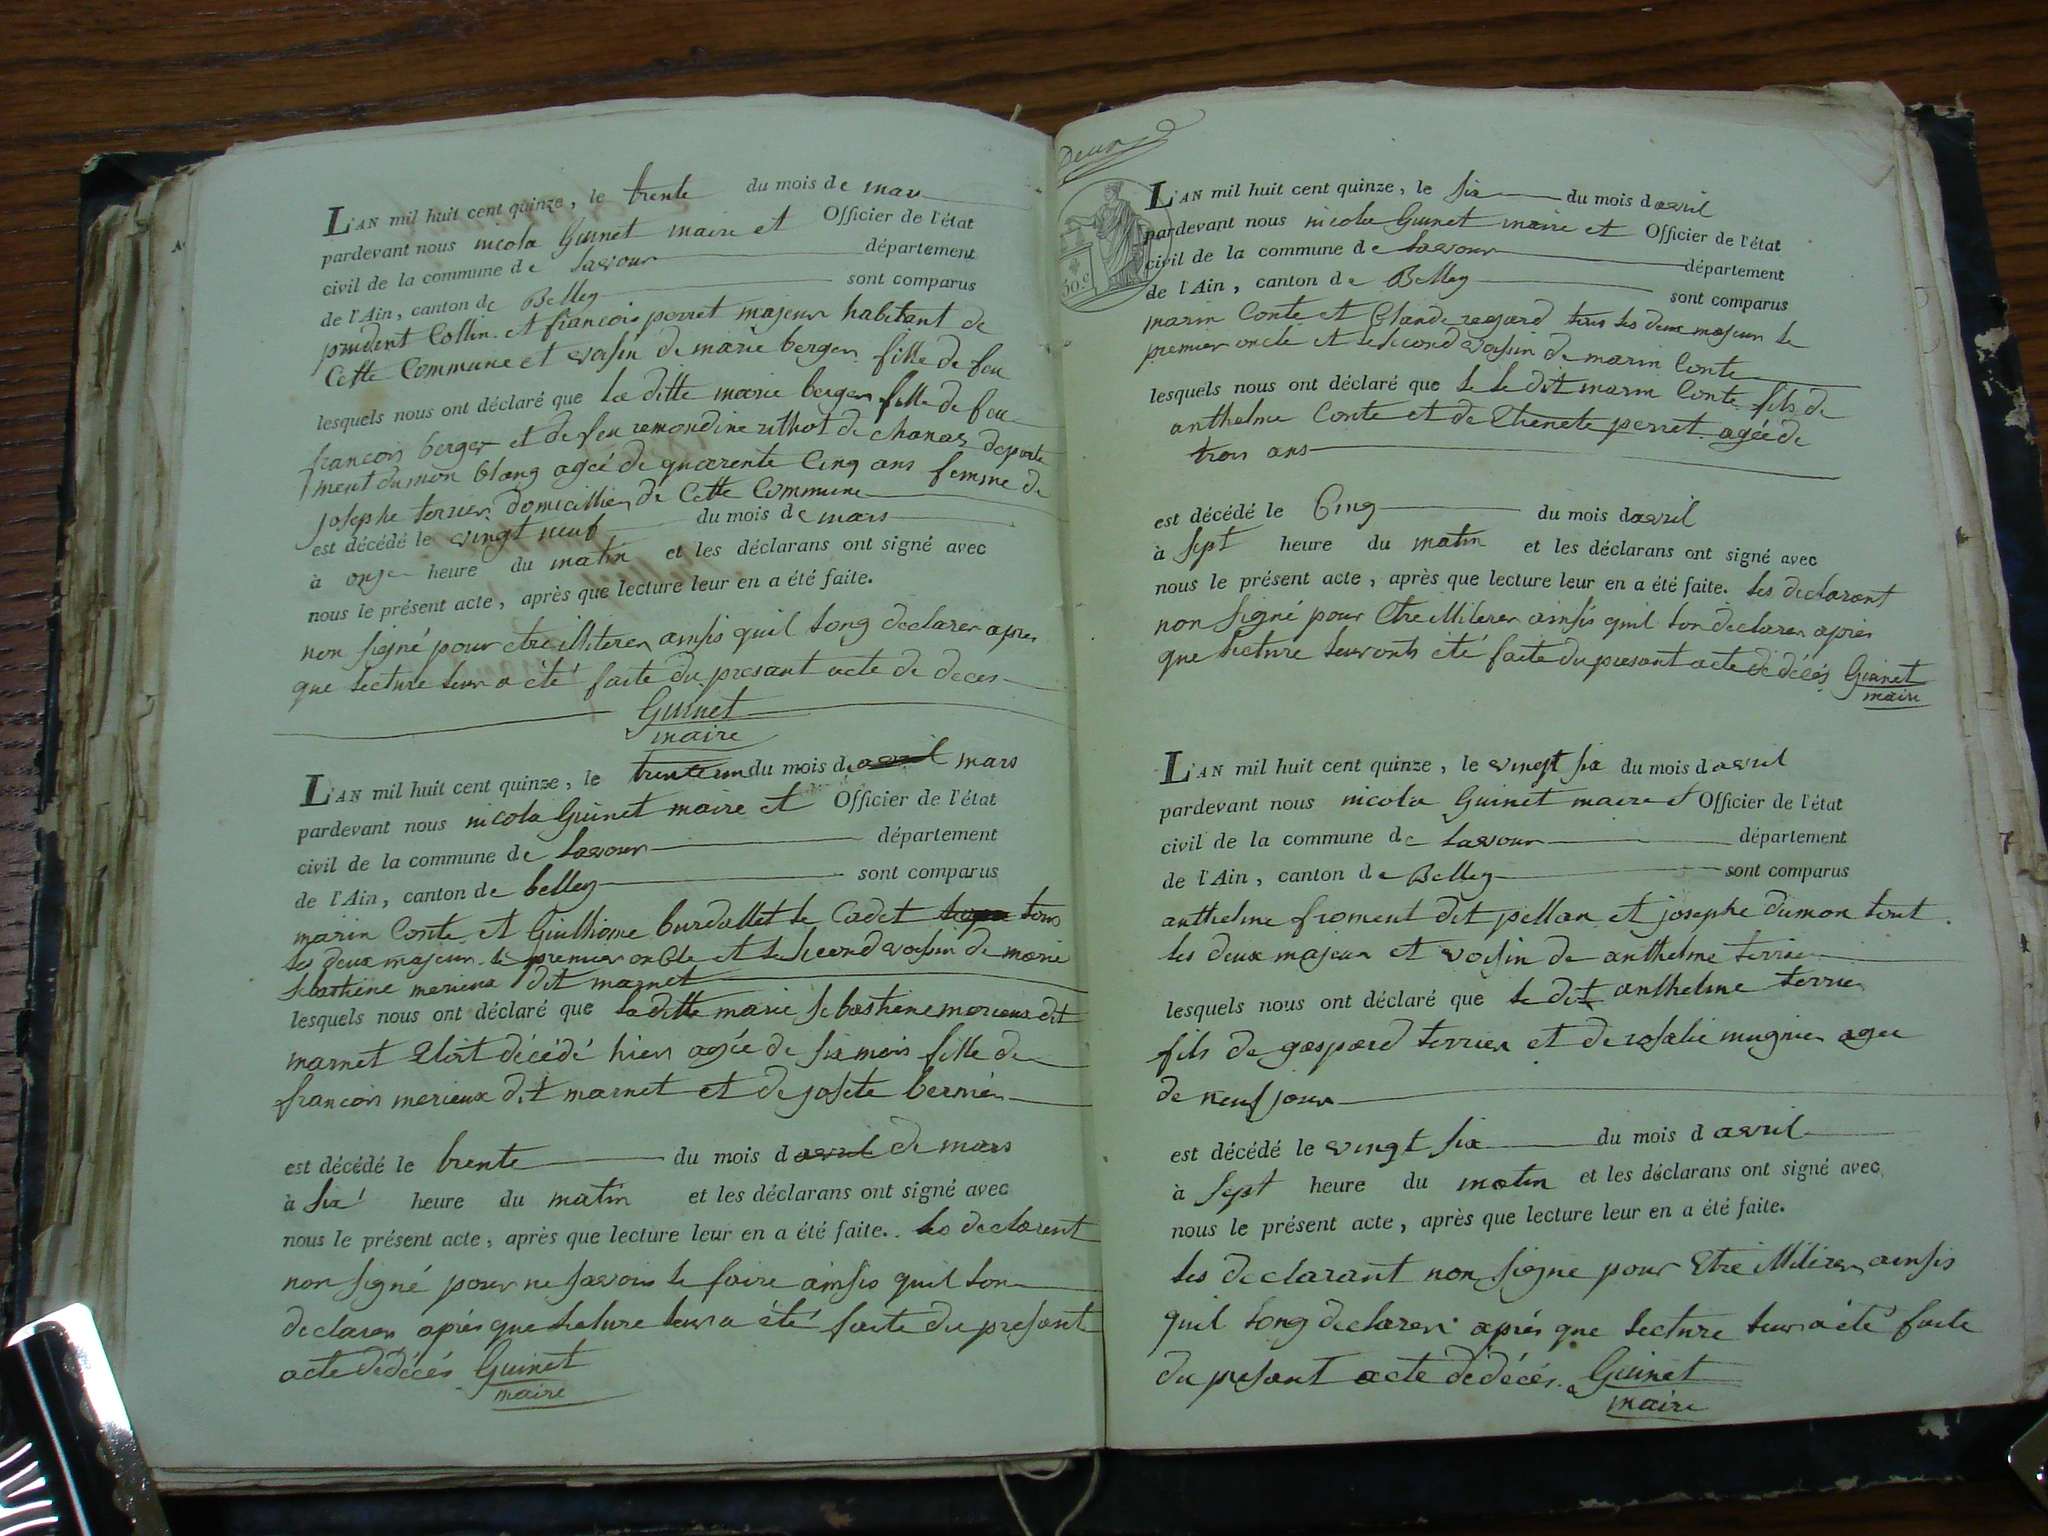 L'AN mil huit cent quinze, le trente du mois de mars
pardevant nous nicola Guinet maire et Officier de l'état
civil de la commune de Lavour département
de l'Ain, canton de Belley sont comparus
prudent Collin et francois perret majeur habitant de
Cette Commune et voisin de marie berger fille de feu
lesquels nous ont déclaré que la ditte marie berger fille de feu
francois berger et de feu remondine rithot de chanaz departe
ment du mon blang ageé de quarente Cinq ans femme de
josephe terrier domicillier de Cette Commune
est décédé le vingt neuf du mois de mars
à onze heure du matin et les déclarans ont signé avec
nous le présent acte, après que lecture leur en a été faite.
non signé pour etre illiterer ainsis quil long declarer apres
que lecture leur a été faite du presant acte de deces
Guinet
maire
L'AN mil huit cent quinze, le trente un du mois d avril mars
pardevant nous nicola Guinet maire et Officier de l'état
civil de la commune de Lavour département
de l'Ain, canton de belley sont comparus
marin Conte et Guilliome burdallet le Cadet tous
les deux majeur le premier oncle et le second voisin de marie
sebastiene merieux dit marnet
lesquels nous ont déclaré que la ditte marie sebastiene merieux dit
marnet Etoit décédé hier ageé de six mois fille de
francois merieux dit marnet et de josete bernier
est décédé le trente du mois d avril de mars
à six heure du matin et les déclarans ont signé avec
nous le présent acte, après que lecture leur en a été faite. les declarent
non signé pour ne savoir le faire ainsis quil lon
declarer apiés que lecture leur a été faite du presant
acte de décés Guinet
maire
Deux
50.c
L'AN mil huit cent quinze, le six du mois d avril
pardevant nous nicola Guinet maire et Officier de l'état
civil de la commune de Lavour département
de l'Ain, canton de Belley sont comparus
marin Conte et Claude regard tous les deux majeur le
premier oncle et le second voisin de marin Conte
lesquels nous ont déclaré que le le dit marin Conte fils de
anthelme Conte et de Etienete perret ageé de
trois ans
est décédé le Cinq du mois d avril
à sept heure du matin et les déclarans ont signé avec
nous le présent acte, après que lecture leur en a été faite. les declarant
non signé pour Etre illiterer ainsis quil lon declarer apiés
que lecture leur onts été faite du presant acte de décés Guinet
maire
L'AN mil huit cent quinze, le vingt six du mois d avril
pardevant nous nicola Guinet maire et Officier de l'état
civil de la commune de Lavour département
de l'Ain, canton de Belley sont comparus
anthelme froment dit pellan et josephe dumon tout
les deux majeur et voisin de anthelme terrier
lesquels nous ont déclaré que le dit anthelme terrier
fils de gaspard terrier et de rosalie mugnier agee
de neuf jour
est décédé le vingt six du mois d avril
à sept heure du matin et les déclarans ont signé avec
nous le présent acte, après que lecture leur en a été faite.
les declarant non signe pour Etre illiterer ainsis
quil long declarer apiés que lecture leur a été faite
du presant acte de décés. Guinet
maire